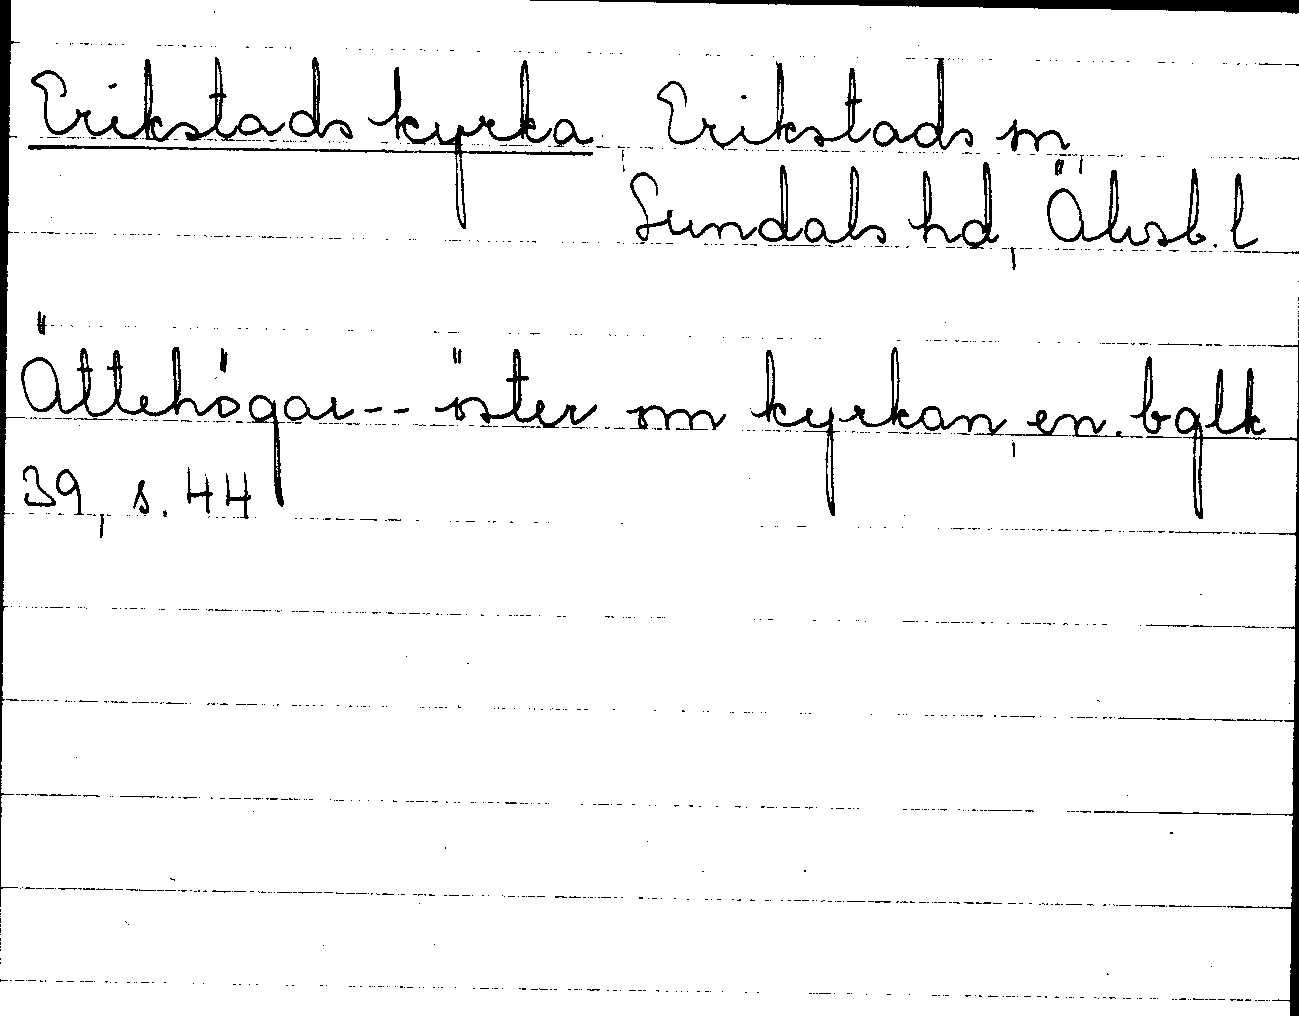 Erikstads kyrka Erikstads sn
Sundals hd, Älvsb. l
Ättehögar -- öster om kyrkan, en. bglk
39, s. 44